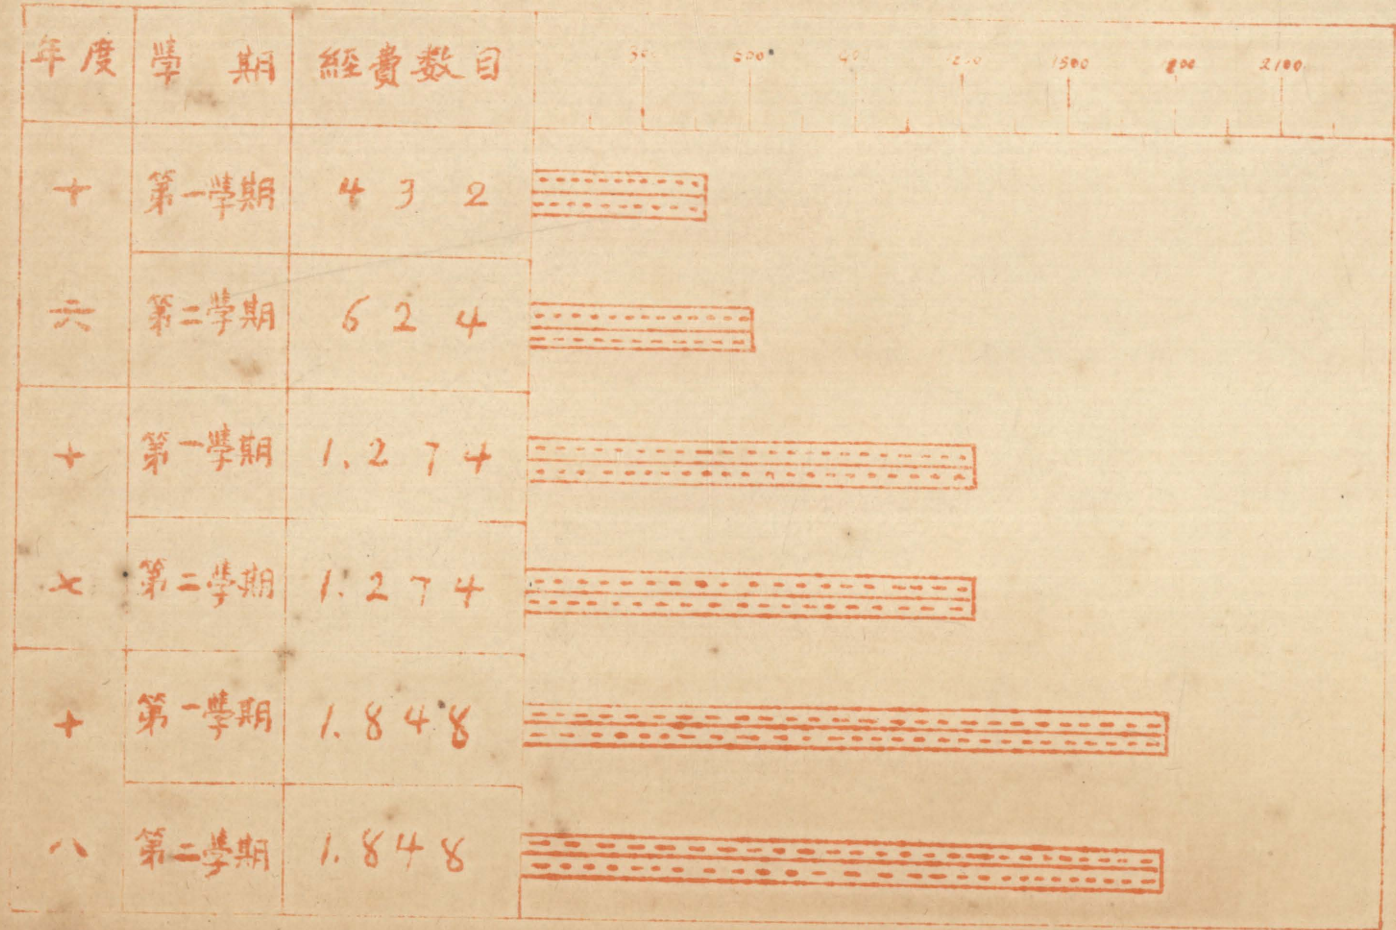 年度 學期 經費数目 300 600 90 1200 1500 1800 2100
十六 第一學期 432
第二學期 624
十七 第一學期 1.274
第二學期 1.274
十八 第一學期 1.848
第二學期 1.848